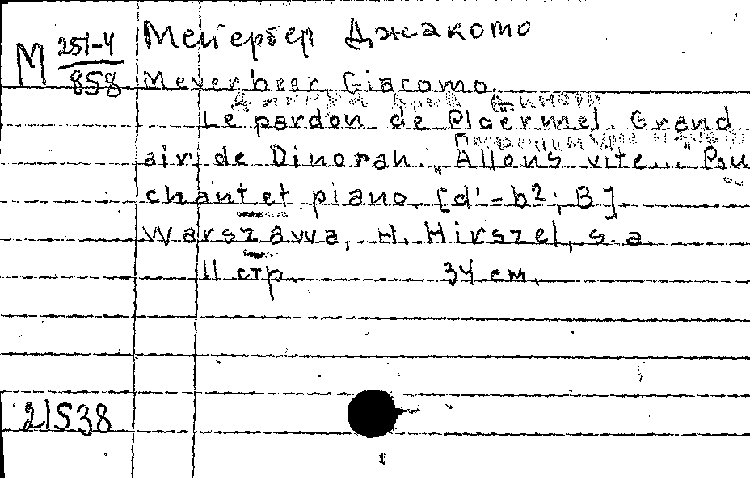 М 251-4/858
Мейербер Джакомо
Meyerbeer, Giacomo.
Le pardon de Ploermel. Grand
air de Dinorah. „Allons vite... Pour
chant et piano. [d'-b²; B]
Warszawa, H. Hirszel, s.a.
11 стр. 34 см.
21538